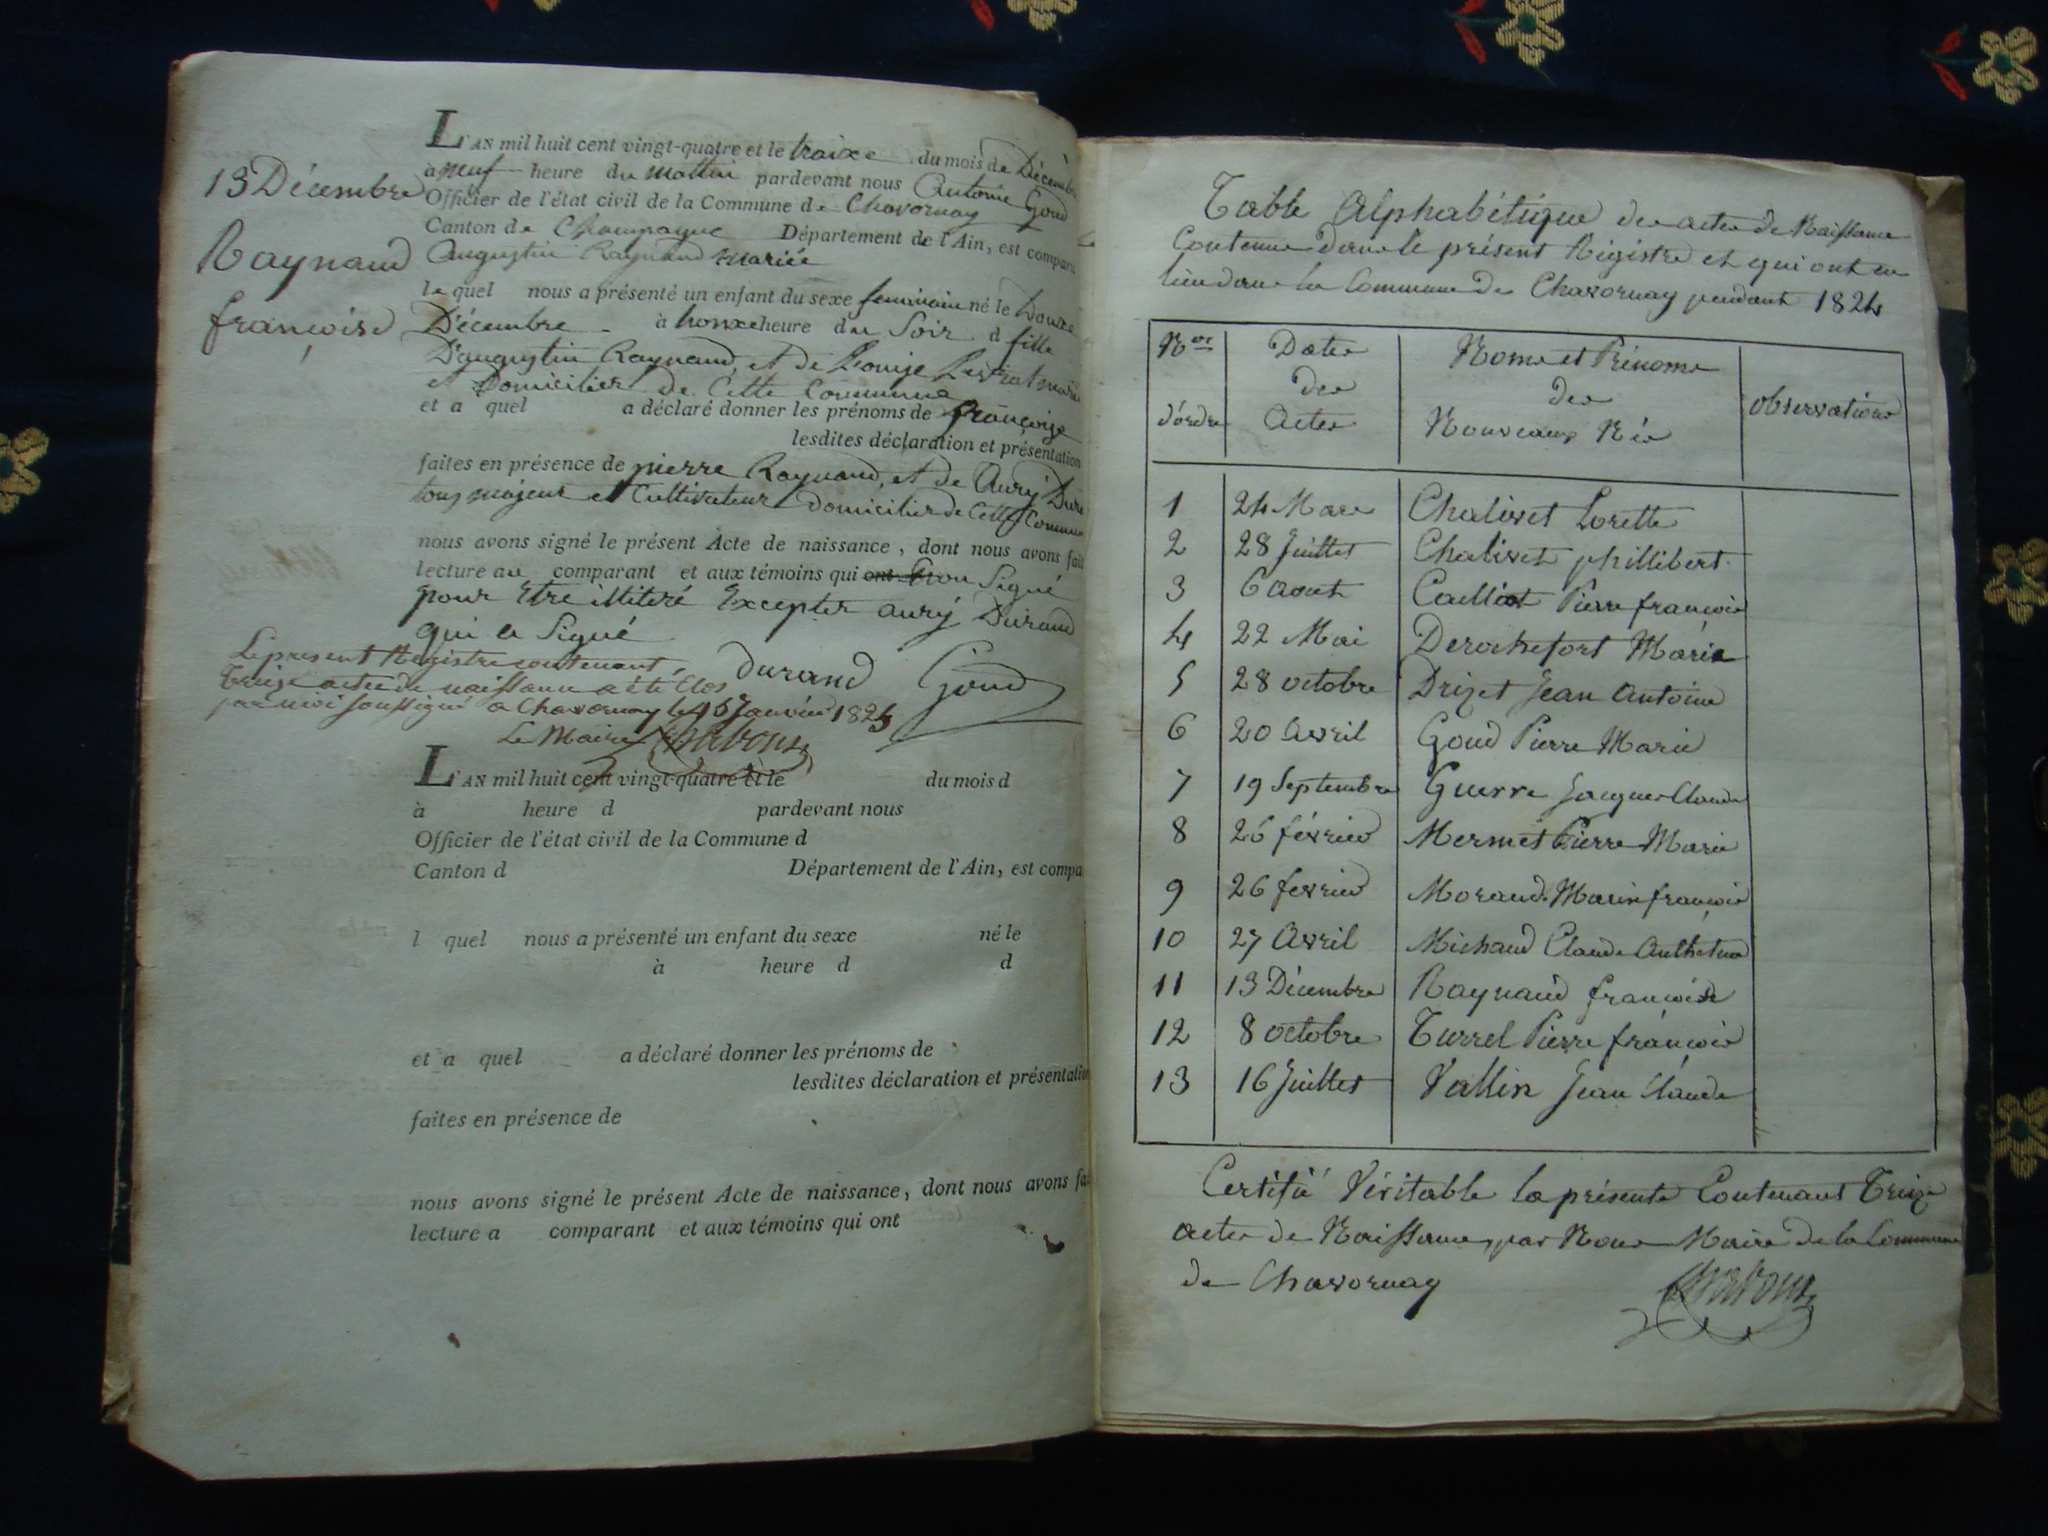 13 Décembre
Raynaud
françoise
L'AN mil huit cent vingt-quatre et le traixe du mois de Décembre
à neuf heure du mattin pardevant nous Antoine Goud
Officier de l'état civil de la Commune de Chavornay
Canton de Champagne Département de l'Ain, est compara
Augustin Raynaud mariée
le quel nous a présenté un enfant du sexe feminain né le Douxe
Décembre à honxe heure du Soir d fille
D'augustin Raynaud, et de Louise
et Domicilier de Cette Commune
et a quel a déclaré donner les prénoms de françoise
lesdites déclaration et présentation
faites en présence de pierre Raynaud, et de Aury Dura
tous majeur et Cultivateur domicilier de Cette Commune
nous avons signé le présent Acte de naissance, dont nous avons fait
lecture au comparant et aux témoins qui ont non Signé
pour Etre illiteré Excepter aury Durand
qui a Signé
durand Goud
Le present Registre contenant
treize actes de naissance a été clos
par moi soussigné a Chavornay le 15 Janvier 1825
Le Maire
L'AN mil huit cent vingt-quatre et le du mois d
à heure d pardevant nous
Officier de l'état civil de la Commune d
Canton d Département de l'Ain, est compa
l quel nous a présenté un enfant du sexe né le
à heure d d
et a quel a déclaré donner les prénoms de
lesdites déclaration et présentation
faites en présence de
nous avons signé le présent Acte de naissance, dont nous avons fai
lecture a comparant et aux témoins qui ont
Table Alphabétique des actes de Naissance
Contenue dans le présent Régistre et qui ont eu
lieu dans la Commune de Chavornay pendant 1824
Nos d'ordre Dates des Actes Noms et Prénoms des Nouveaux Nés observations
1 24 Mars Chalivet Lorette
2 28 Juillet Chalivet phillibert
3 6 Aout Cailliot Pierre françois
4 22 Mai Derochefort Marie
5 28 octobre Drizet Jean Antoine
6 20 Avril Goud Pierre Marie
7 19 Septembre Guerre Jacques Claude
8 26 février Mermet Pierre Marie
9 26 fevrier Morand Marie françois
10 27 Avril Michaud Claude Anthelme
11 13 Décembre Raynaud francoise
12 8 octobre Turrel Pierre françois
13 16 Juillet Vallin Jean Claude
Certifié Véritable la présente Contenant Treize
actes de Naissance, par Nous Maire de la Commune
de Chavornay